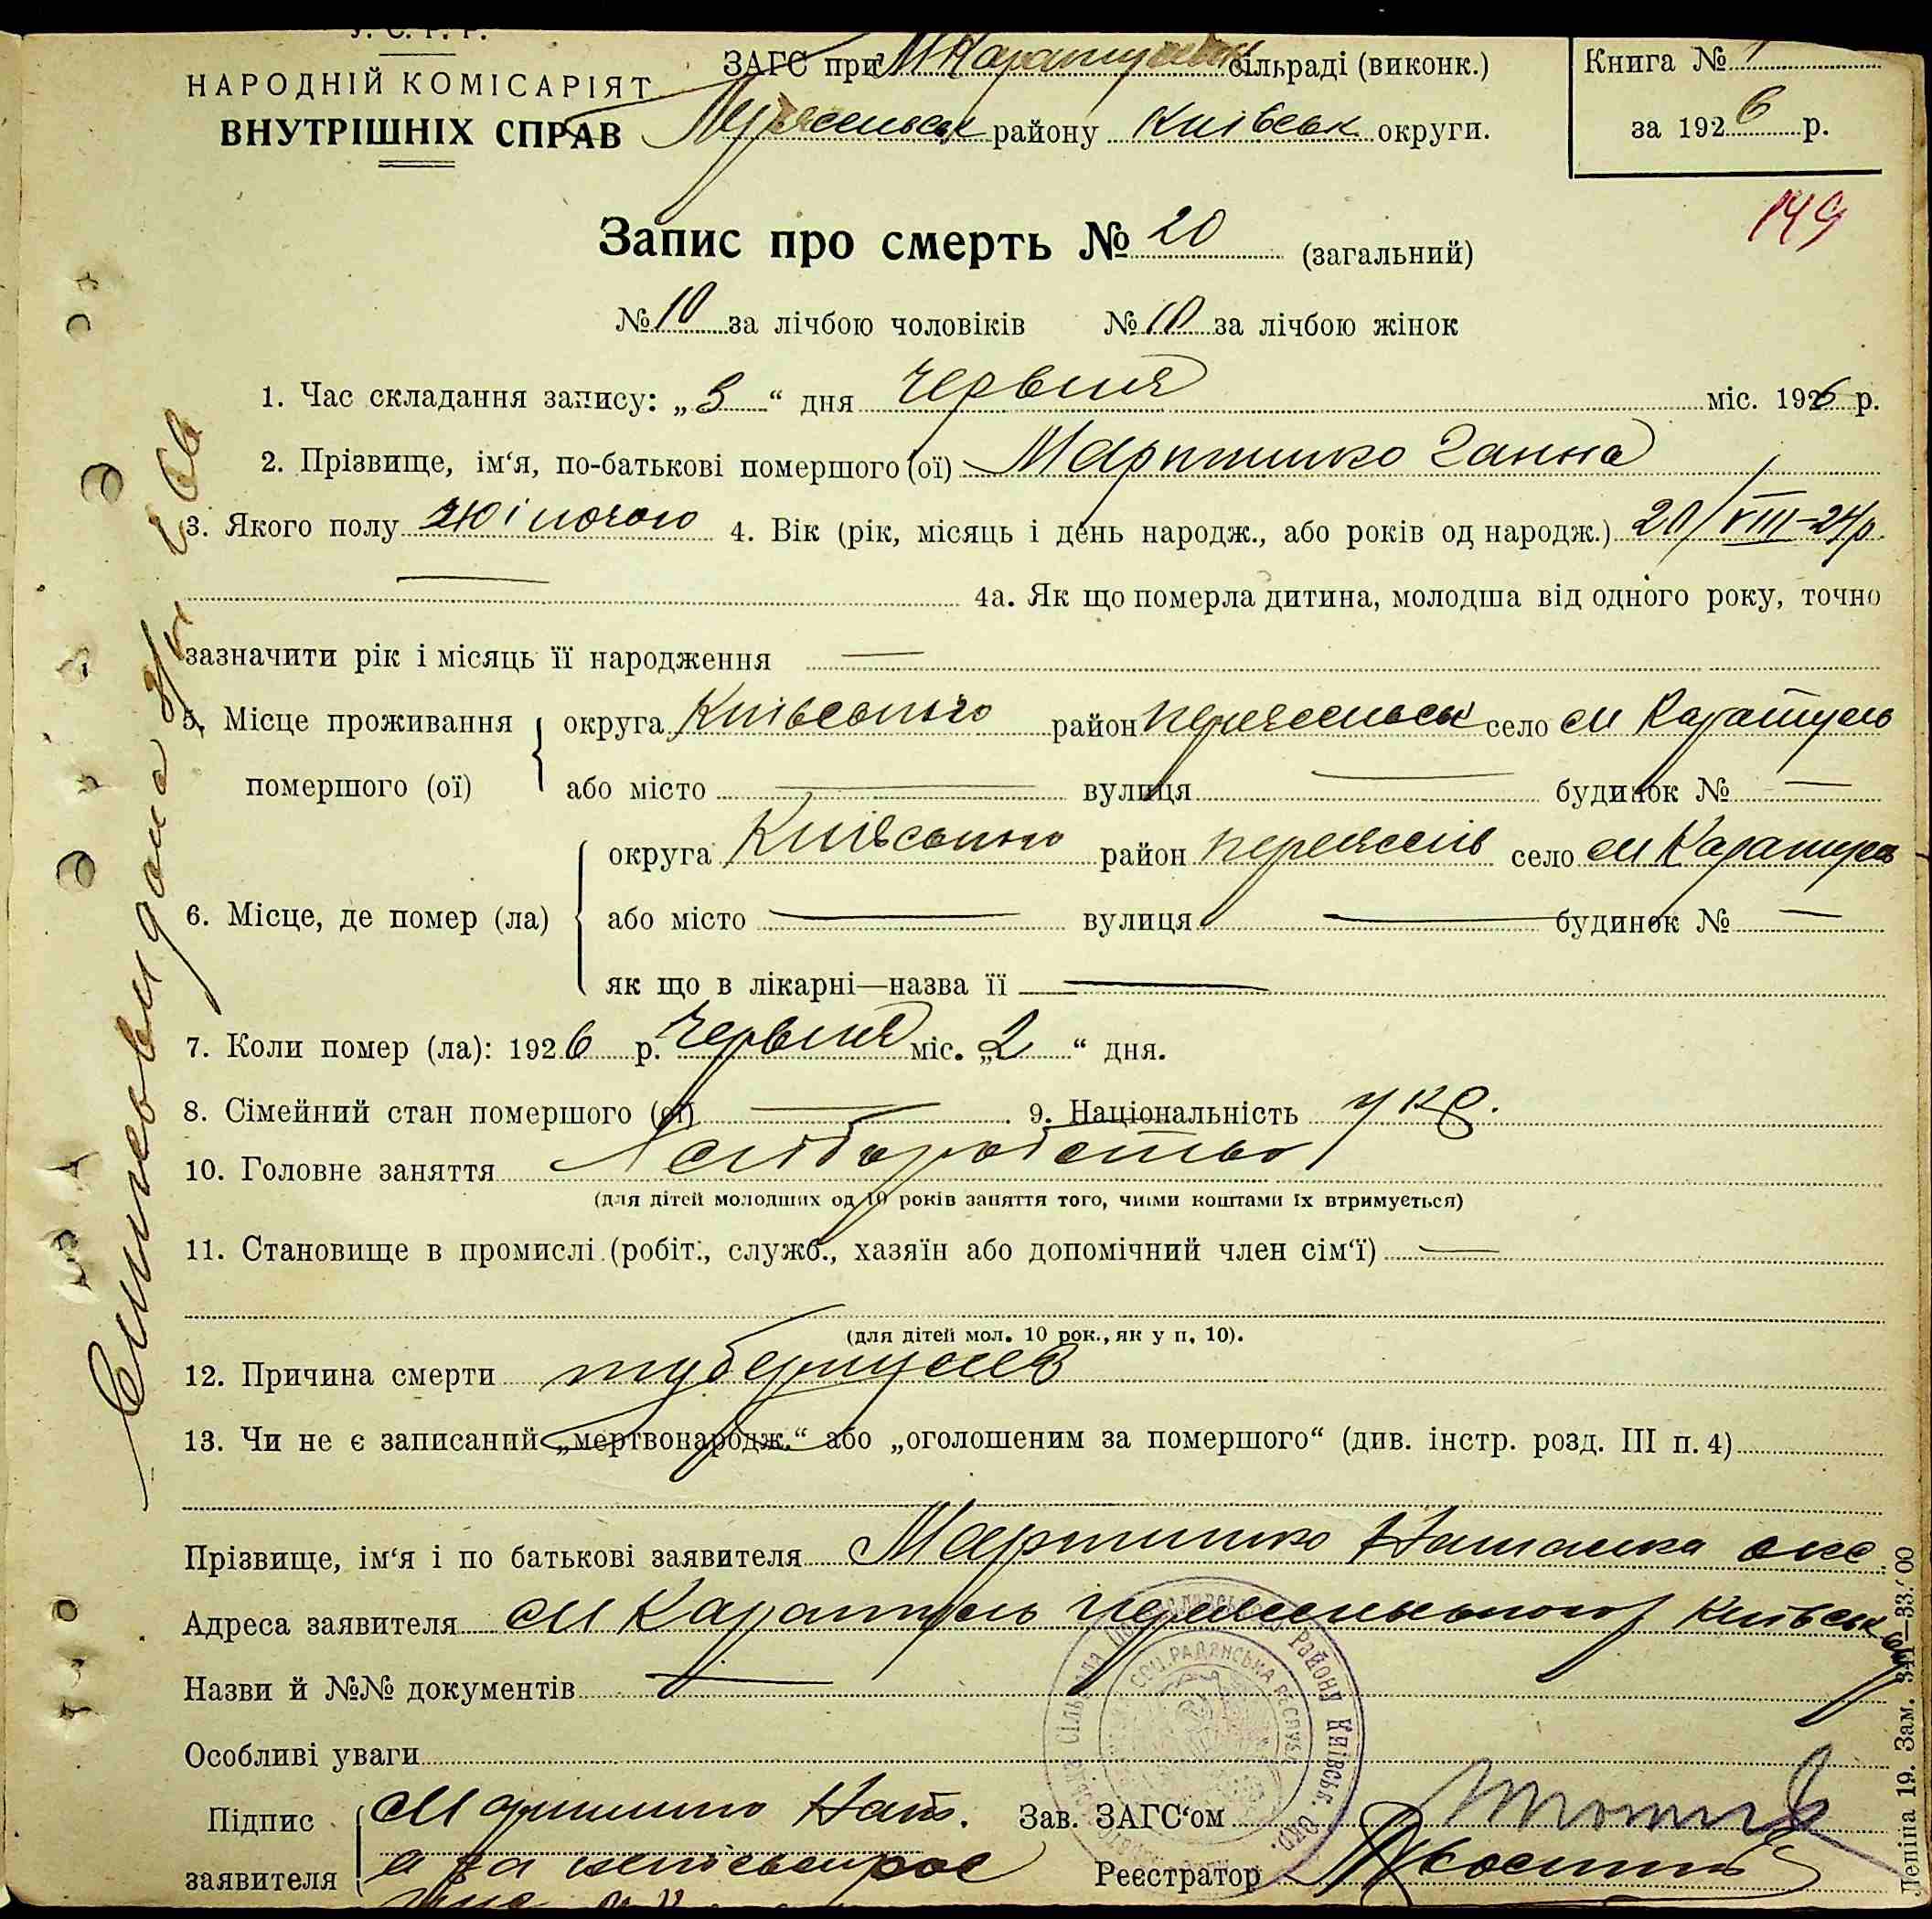 У. С. Р. Р.
НАРОДНІЙ КОМІСАРІЯТ
ВНУТРІШНІХ СПРАВ
ЗАГС при М Каратульск сільраді (виконк.)
району Київськ округи.
Книга № 1
за 1926 р.
149
Запис про смерть № 20 (загальний)
№ 10 за лічбою чоловіків № 10 за лічбою жінок
1. Час складання запису: „3“ дня Червня міс. 1926 р.
2. Прізвище, ім‘я, по-батькові помершого (ої) Мартишко Ганна
3. Якого полу жіночого 4. Вік (рік, місяць і день народж., або років од народж.) 20/VIII-24р.
4а. Як що померла дитина, молодша від одного року, точно
зазначити рік і місяць її народження —
5. Місце проживання помершого (ої) округа Київського район Переяславськ село м Каратуль
або місто — вулиця — будинок № —
6. Місце, де помер (ла) округа Київського район Переяслів село м Каратуль
або місто — вулиця — будинок № —
як що в лікарні—назва її —
7. Коли помер (ла): 1926 р. Червня міс. „2“ дня.
8. Сімейний стан помершого (ої) — 9. Національність укр.
10. Головне заняття
(для дітей молодших од 10 років заняття того, чиїми коштами їх втримується)
11. Становище в промислі (робіт., служб., хазяїн або допомічний член сім‘ї) —
(для дітей мол. 10 рок., як у п. 10).
12. Причина смерти туберкульоз
13. Чи не є записаний „мертвонародж.“ або „оголошеним за помершого“ (див. інстр. розд. III п. 4)
Прізвище, ім‘я і по батькові заявителя Мартишко Наталка
Адреса заявителя м Каратуль Київськ
Назви й №№ документів —
Особливі уваги
Підпис заявителя Мартишко Нат.
а за
Зав. ЗАГС‘ом
Реєстратор
Леніна 19. Зам. 341—33.000